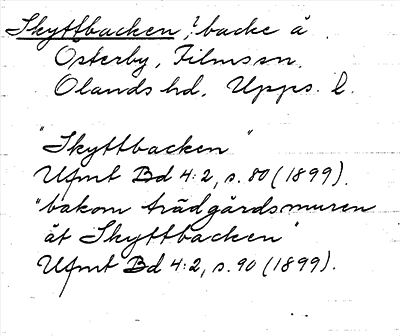 Skyttbacken, ? backe å
Österby, Films sn,
Olands hd, Upps. l.
"Skyttbacken"
Ufmt Bd 4:2, s. 80 (1899).
"bakom trädgårdsmuren
åt Skyttbacken"
Ufmt Bd 4:2, s. 90 (1899).